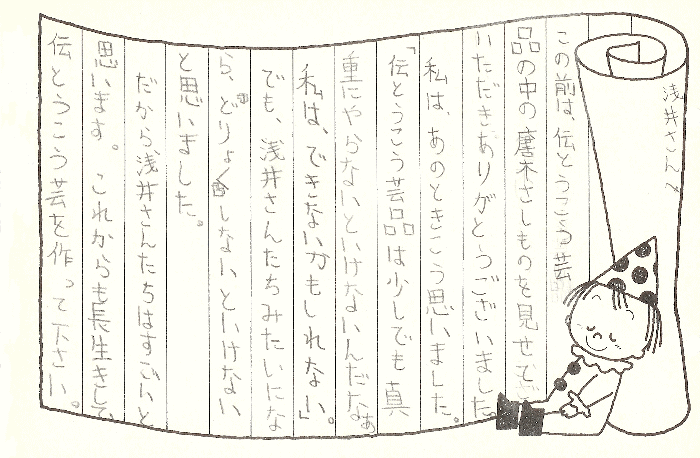 浅井さんへ
この前は、伝とうこう芸
品の中の唐木さしものを見せて
いただきありがとうございました。
私は、あのときこう思いました。
「伝とうこう芸品は少しでも真
重にやらないといけないんだなぁ
私は、できないかもしれない。」
でも、浅井さんたちみたいにな
ら、どりょくしないといけない
と思いました。
だから、浅井さんたちはすごいと
思います。これからも長生きして
伝とうこう芸を作って下さい。